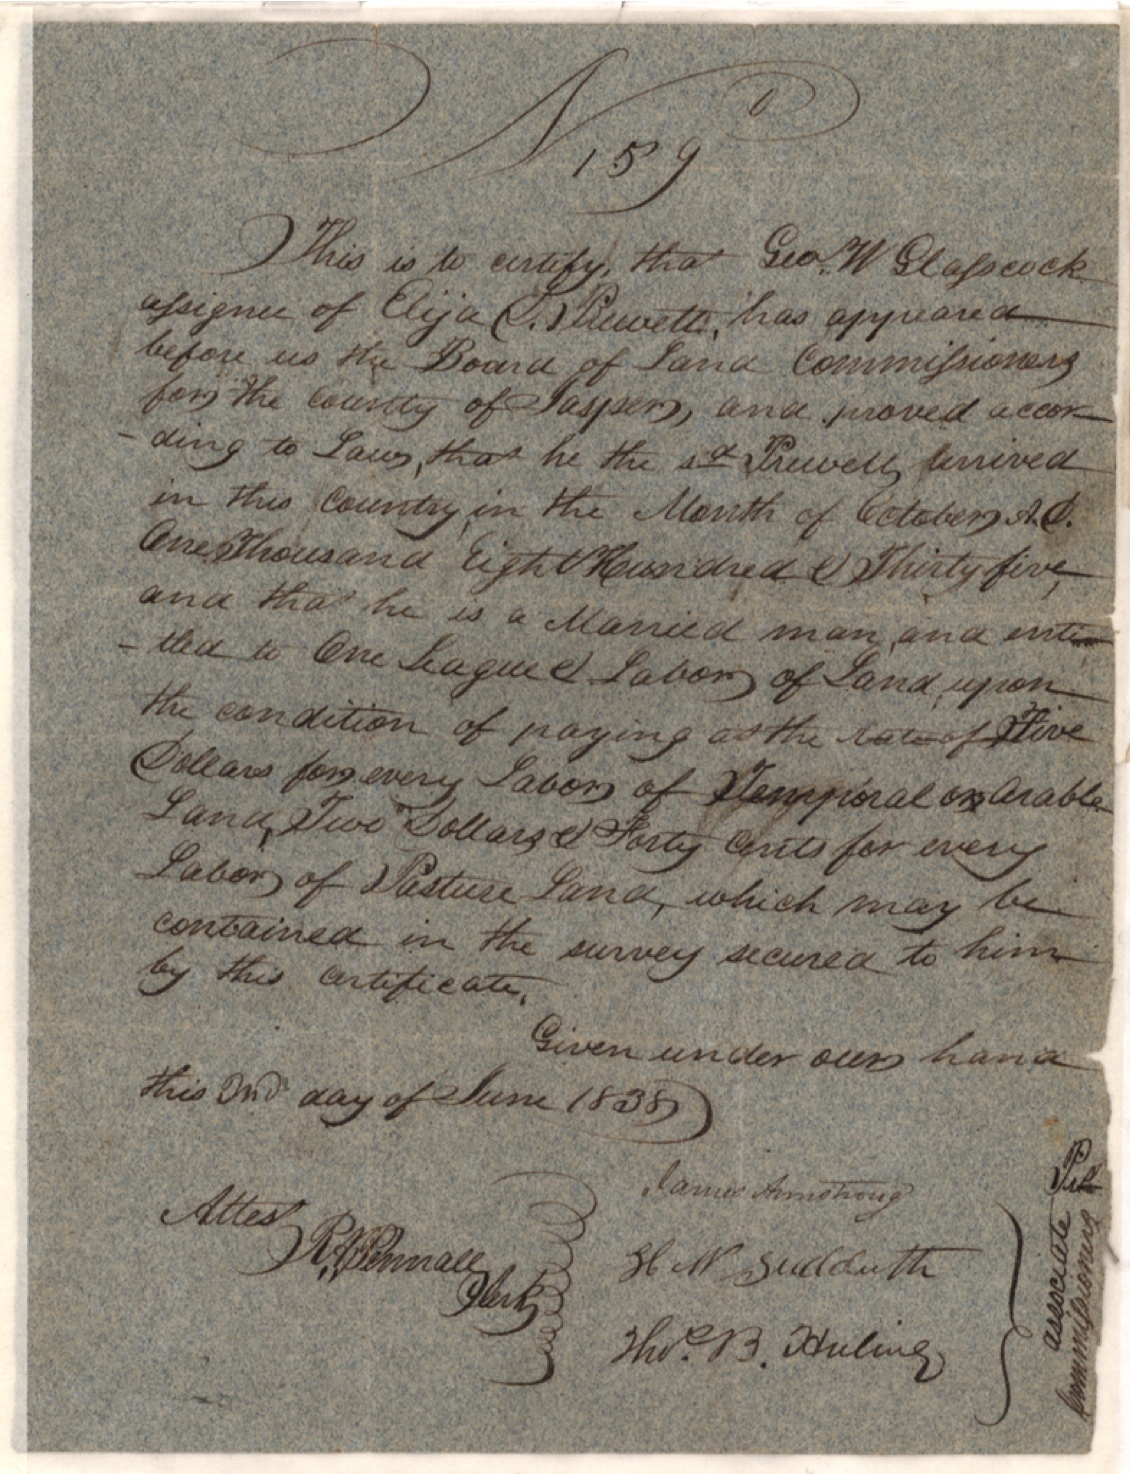 No
159
This is to certify, that Geo. W Glasscock
assignee of Elija S. Prewett, has appeared
before us the Board of Land Commissioners
for the County of Jasper, and proved accor
-ding to Law, that he the sd Prewett, arrived
in this Country, in the Month of October A.D.
One Thousand Eight Hundred & Thirty five,
and that he is a Married man, and enti
-tled to One League & Labor of Land, upon
the condition of paying at the rate of Five
Dollars for every Labor of Temporal or arable
Land, Two Dollars & Forty Cents for every
Labor of Pasture Land, which may be
contained in the survey secured to him
by this certificate.
Given under our hand
this 2nd day of June 1838
James Armstrong
Attest
R. C. Pennall
Clerk
H N Sudduth
Thos. B. Huling
associate
Commissioners